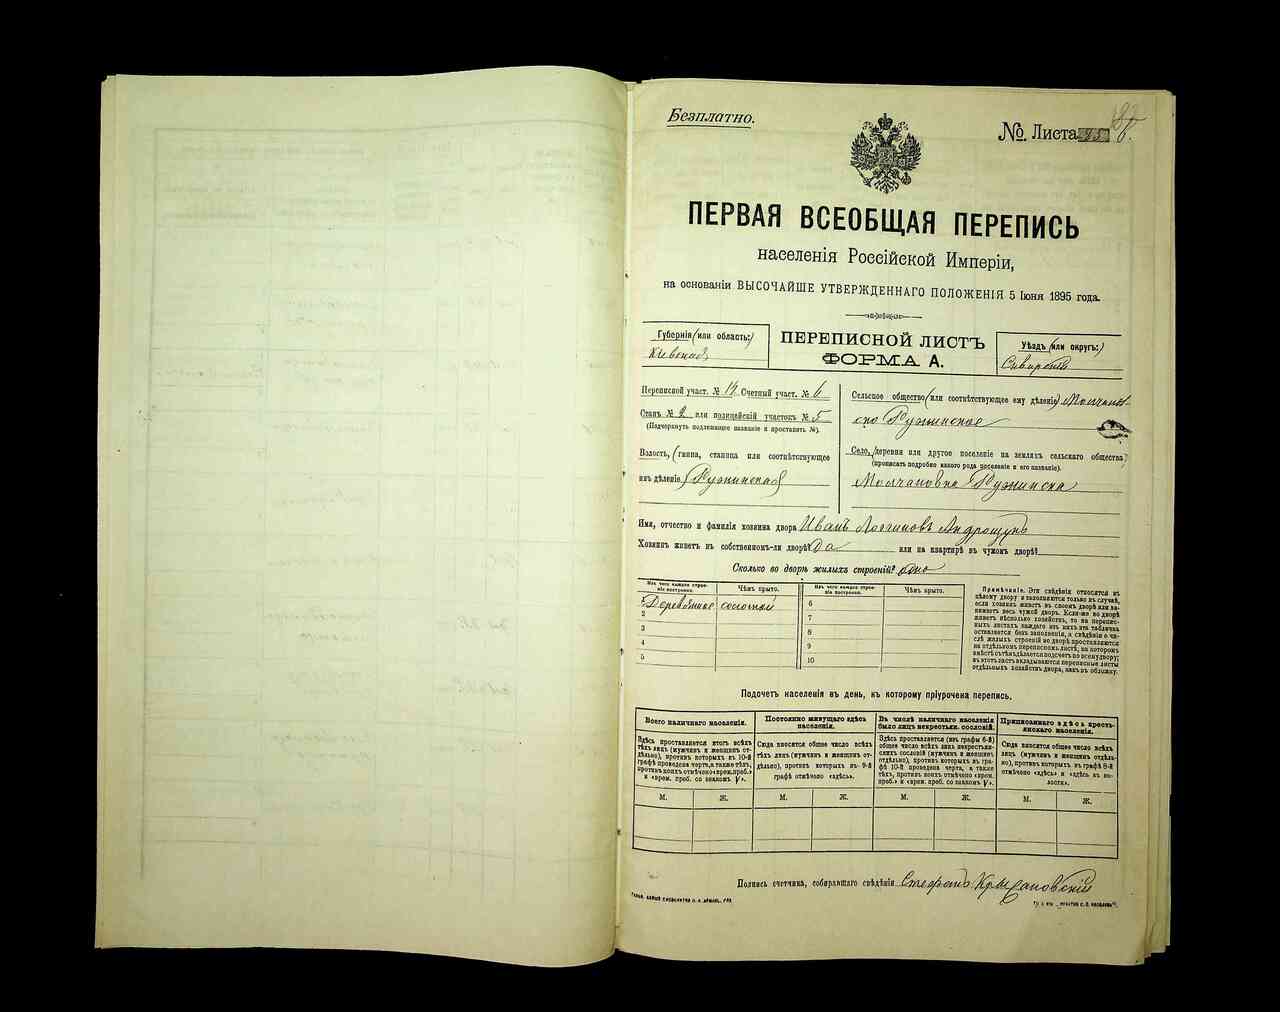 Безплатно.
№. Листа 95
ПЕРВАЯ ВСЕОБЩАЯ ПЕРЕПИСЬ
населенія Россійской Имперіи,
на основаніи ВЫСОЧАЙШЕ УТВЕРЖДЕННАГО ПОЛОЖЕНІЯ 5 Іюня 1895 года.
Губернія (или область:)
Кіевская
ПЕРЕПИСНОЙ ЛИСТЪ
ФОРМА А.
Уѣздъ (или округъ:)
Сквирскій
Переписной участ. № 14 Счетный участ. № 6
Станъ № 2 или полицейскій участокъ № 5
(Подчеркнуть подлежащее названіе и проставить №).
Волость, (гмина, станица или соотвѣтствующее
имъ дѣленіе) Ружинская
Сельское общество (или соотвѣтствующее ему дѣленіе) Молчанов-
ско Ружинское
Село, (деревня или другое поселеніе на земляхъ сельскаго общества)
(прописать подробно какого рода поселеніе и его названіе).
Молчановка Ружинска
Имя, отчество и фамилія хозяина двора Иванъ Логгиновъ Андрощукъ
Хозяинъ живетъ въ собственномъ-ли дворѣ? да или на квартирѣ въ чужомъ дворѣ?
Сколько во дворѣ жилыхъ строеній? одно
Изъ чего каждое строеніе построено. Чѣмъ крыто. Изъ чего каждое строеніе построено. Чѣмъ крыто.
1 Деревянное соломой 6
2 7
3 8
4 9
5 10
Примѣчаніе. Эти свѣдѣнія относятся къ
цѣлому двору и заполняются только въ случаѣ,
если хозяинъ живетъ въ своемъ дворѣ или занимаетъ
весь чужой дворъ. Если-же во дворѣ
живетъ нѣсколько хозяйствъ, то на переписныхъ
листахъ каждаго изъ нихъ эта табличка
оставляется безъ заполненія, а свѣдѣнія о числѣ
жилыхъ строеній во дворѣ проставляются
на отдѣльномъ переписномъ листѣ, на которомъ
вмѣстѣ съ тѣмъ дѣлается подсчетъ по всему двору;
въ этотъ листъ вкладываются переписные листы
отдѣльныхъ хозяйствъ двора, какъ въ обложку.
Подсчетъ населенія въ день, къ которому пріурочена перепись.
Всего наличнаго населенія.
Здѣсь проставляется итогъ всѣхъ
тѣхъ лицъ (мужчинъ и женщинъ отдѣльно),
противъ которыхъ въ 10-й
графѣ проведена черта, а также тѣхъ,
противъ коихъ отмѣчено «врем. преб.»
и «врем. преб. со знакомъ V».
Постоянно живущаго здѣсь
населенія.
Сюда вносится общее число всѣхъ
тѣхъ лицъ (мужчинъ и женщинъ отдѣльно),
противъ которыхъ въ 9-й
графѣ отмѣчено «здѣсь».
Въ числѣ наличнаго населенія
было лицъ некрестьян. сословій.
Здѣсь проставляется (изъ графы 6-й)
общее число всѣхъ лицъ некрестьянскихъ
сословій (мужчинъ и женщинъ
отдѣльно), противъ которыхъ въ графѣ
10-й проведена черта, а также
тѣхъ, противъ коихъ отмѣчено «врем.
преб.» и «врем. преб. со знакомъ V».
Приписаннаго здѣсь крестьянскаго
населенія.
Сюда вносится общее число всѣхъ
лицъ (мужчинъ и женщинъ отдѣльно),
противъ которыхъ въ графѣ 8-й
отмѣчено «здѣсь» и «здѣсь въ волости».
М. Ж. М. Ж. М. Ж. М. Ж.
Подпись счетчика, собиравшаго свѣдѣнія Стефанъ Крыжановскій